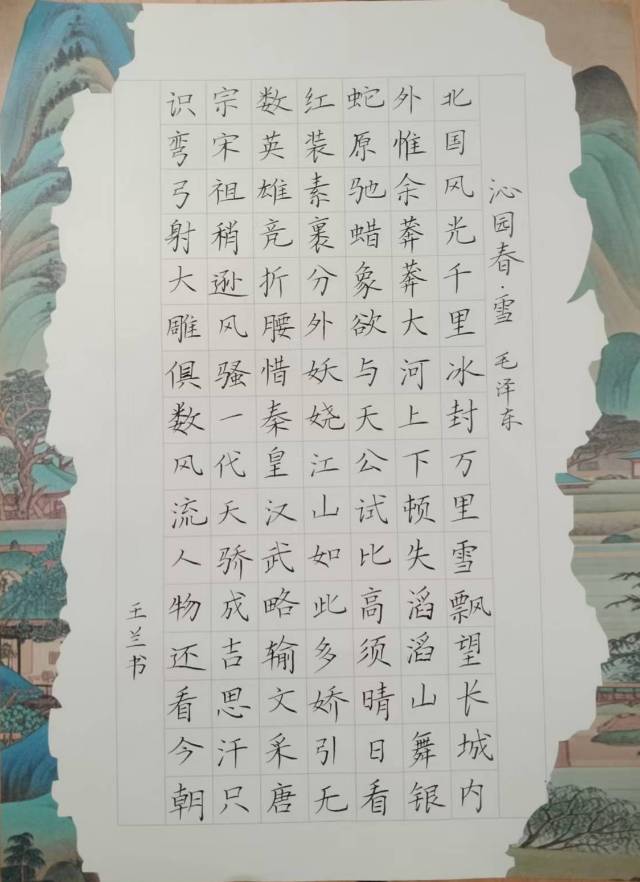 沁园春·雪 毛泽东
北国风光千里冰封万里雪飘望长城内
外惟余莽莽大河上下顿失滔滔山舞银
蛇原驰蜡象欲与天公试比高须晴日看
红装素裹分外妖娆江山如此多娇引无
数英雄竞折腰惜秦皇汉武略输文采唐
宗宋祖稍逊风骚一代天骄成吉思汗只
识弯弓射大雕俱数风流人物还看今朝
王兰书